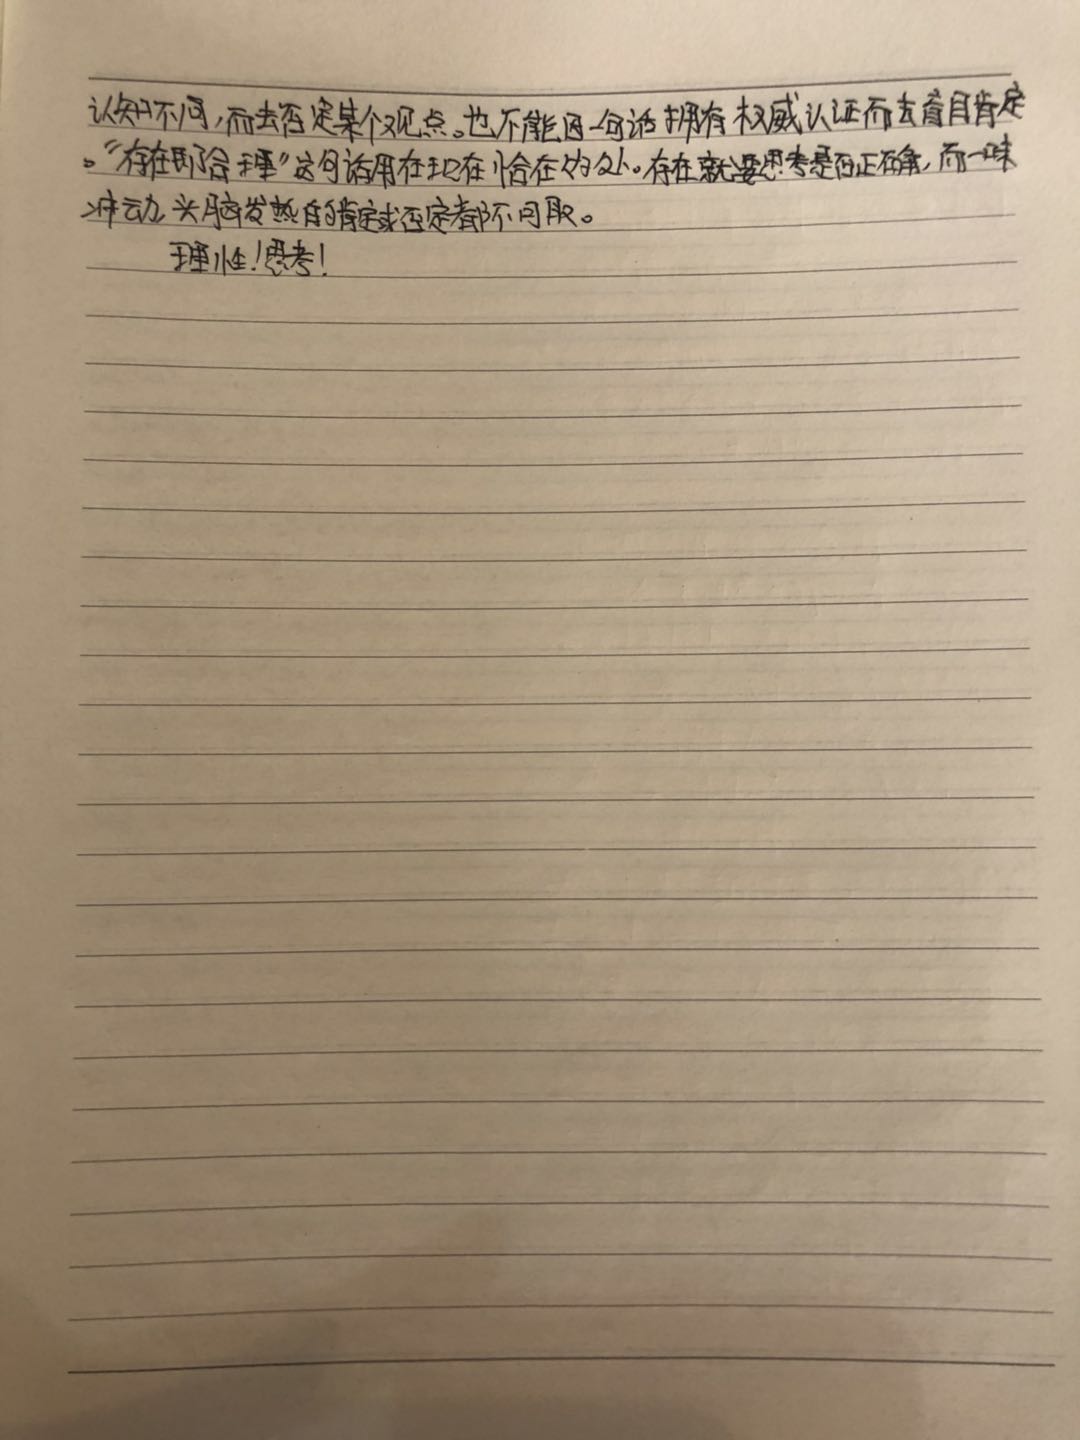 认知不同，而去否定某个观点。也不能因一句话拥有权威认证而去盲目肯定
。“存在即合理”这句话用在现在恰在好处。存在就要思考是否正确，而一味
冲动，头脑发热的肯定或否定都不可取。
理性！思考！